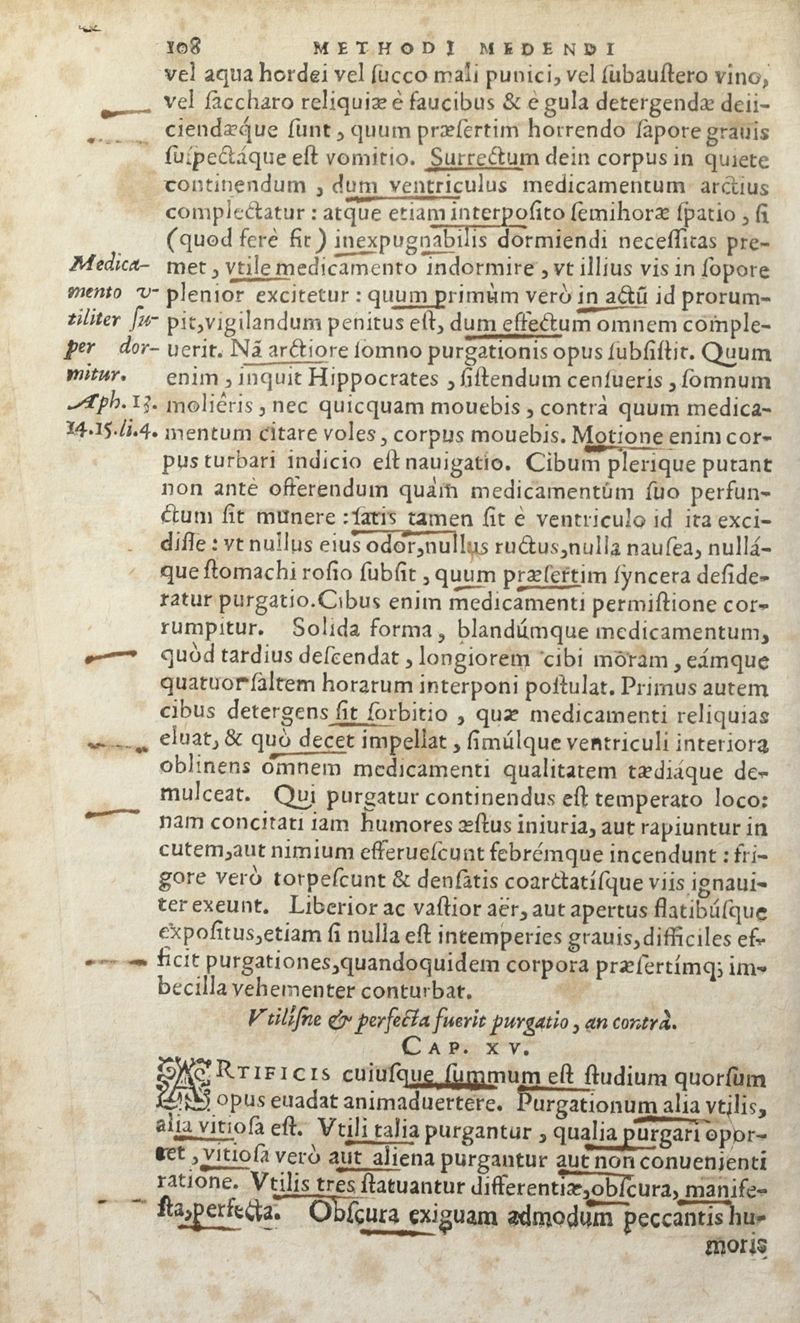 108 METHODI MEDENDI
vel aqua hordei vel ſucco mali punici, vel ſubauſtero vino,
vel ſaccharo reliquiæ è faucibus & è gula detergendæ deii-
ciendæq́ue ſunt, quum præſertim horrendo ſapore grauis
ſuſpectáque eſt vomitio. Surrectum dein corpus in quiete
continendum, dum ventriculus medicamentum arctius
complectatur: atque etiam interpoſito ſemihoræ ſpatio, ſi
(quod ferè fit) inexpugnabilis dormiendi neceſſitas pre-
Medica- met, vtile medicamento indormire, vt illius vis in ſopore
mento v- plenior excitetur: quum primùm verò in actũ id prorum-
tiliter ſu- pit, vigilandum penitus eſt, dum effectum omnem comple-
per dor- uerit. Nã arctiore ſomno purgationis opus ſubſiſtit. Quum
mitur. enim, inquit Hippocrates, ſiſtendum cenſueris, ſomnum
Aph. 13. moliêris, nec quicquam mouebis, contrà quum medica-
14.15.li.4. mentum citare voles, corpus mouebis. Motione enim cor-
pus turbari indicio eſt nauigatio. Cibum plerique putant
non antè offerendum quàm medicamentùm ſuo perfun-
ctum ſit munere: ſatis tamen ſit è ventriculo id ita exci-
diſſe: vt nullus eius odor, nullus ructus, nulla nauſea, nullá-
que ſtomachi roſio ſubſit, quum præſertim ſyncera deſide-
ratur purgatio. Cibus enim medicamenti permiſtione cor-
rumpitur. Solida forma, blandúmque medicamentum,
quòd tardius deſcendat, longiorem cibi moram, eámque
quatuor ſaltem horarum interponi poſtulat. Primus autem
cibus detergens ſit ſorbitio, quæ medicamenti reliquias
eluat, & quò decet impellat, ſimúlque ventriculi interiora
oblinens omnem medicamenti qualitatem tædiáque de-
mulceat. Qui purgatur continendus eſt temperato loco:
nam concitati iam humores æſtus iniuria, aut rapiuntur in
cutem, aut nimium efferueſcunt febrémque incendunt: fri-
gore verò torpeſcunt & denſatis coarctatíſque viis ignaui-
ter exeunt. Liberior ac vaſtior aër, aut apertus flatibúſque
expoſitus, etiam ſi nulla eſt intemperies grauis, difficiles ef-
ficit purgationes, quandoquidem corpora præſertímq; im-
becilla vehementer conturbat.
Vtiliſne & perfecta fuerit purgatio, an contrà.
CAP. XV.
ARTIFICIS cuiuſque ſummum eſt ſtudium quorſum
opus euadat animaduertere. Purgationum alia vtilis,
alia vitioſa eſt. Vtili talia purgantur, qualia purgari opor-
tet, vitioſa verò aut aliena purgantur aut non conuenienti
ratione. Vtilis tres ſtatuantur differentiæ, obſcura, manife-
ſta, perfecta. Obſcura exiguam admodum peccantis hu-
moris